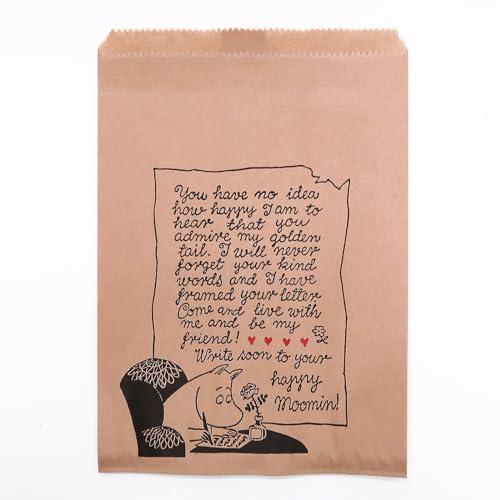 You have no idea
how happy I am to
hear that you
admire my golden
tail. I will never
forget your kind
words and I have
framed your letter
Come and live with
me and be my
friend!
Write soon to your
happy
Moomin!